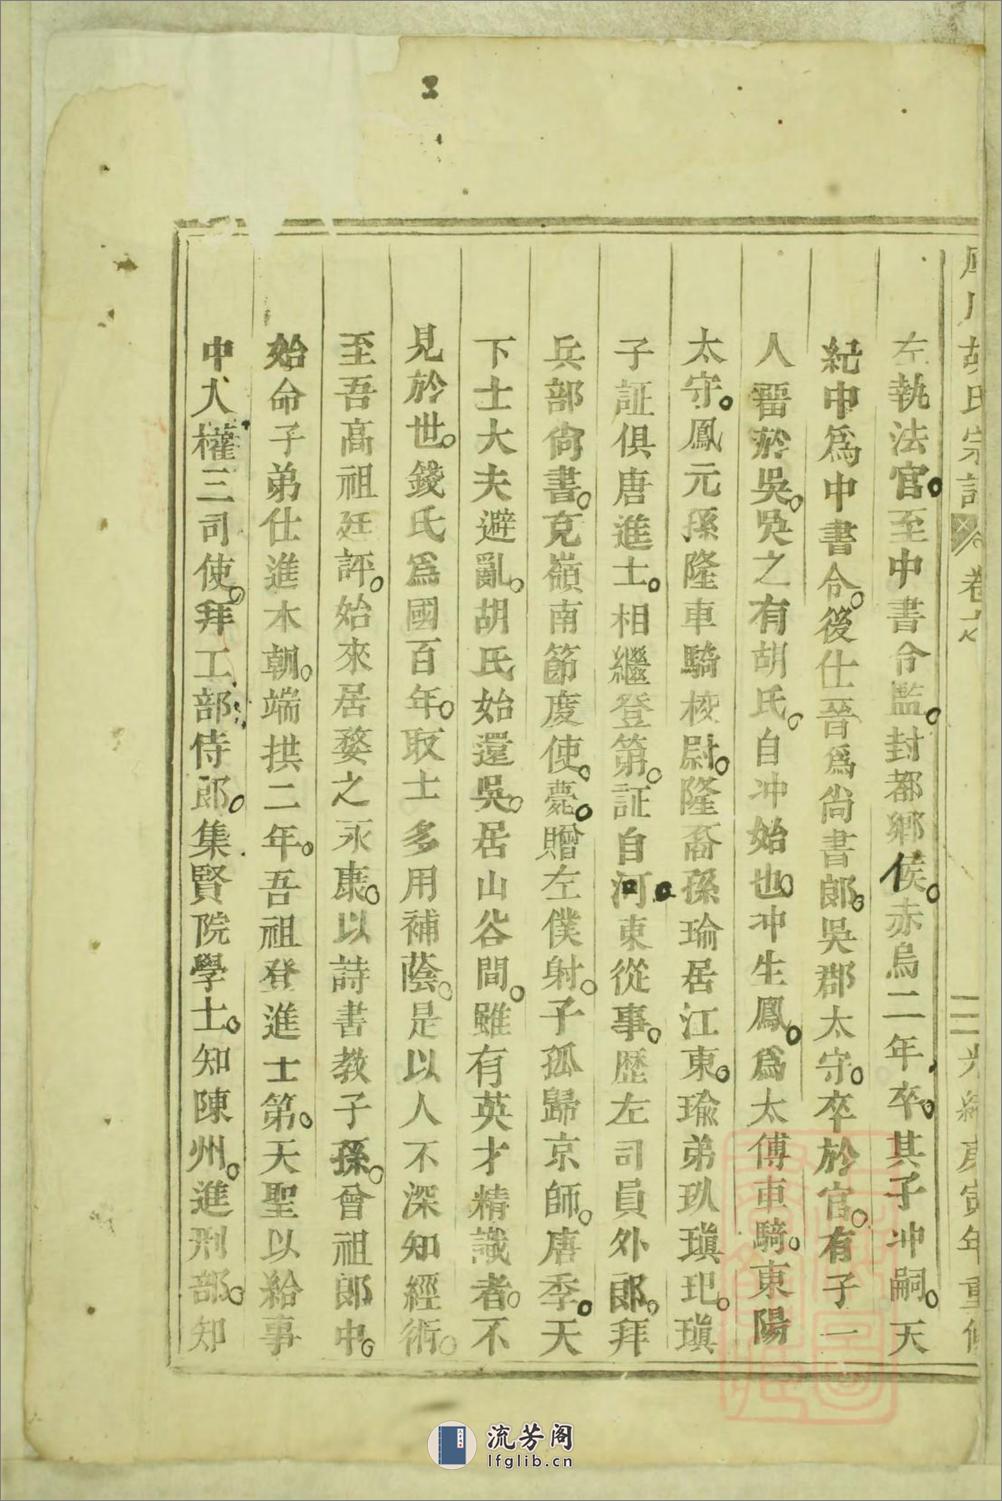 胡氏宗譜 卷
光緒庚寅年重修
左執法官至中書令監封都鄉侯赤烏二年卒其子冲嗣天
紀中爲中書令後仕晉爲尙書郞吳郡太守卒於官有子一
人畱於吳吳之有胡氏自冲始也冲生鳳爲太傅車騎東陽
太守鳳元孫隆車騎校尉隆裔孫瑜居江東瑜弟玖瑱玘瑱
子証俱唐進士相繼登第証自河東從事歷左司員外郞拜
兵部尙書克嶺南節度使薨贈左僕射子孤歸京師唐季天
下士大夫避亂胡氏始還吳居山谷間雖有英才精識者不
見於世錢氏爲國百年取士多用補蔭是以人不深知經術
至吾高祖廷評始來居婺之永康以詩書教子孫曾祖郞中
始命子弟仕進本朝端拱二年吾祖登進士第天聖以給事
中入權三司使拜工部侍郞集賢院學士知陳州進刑部知
流芳阁
lfglib.cn